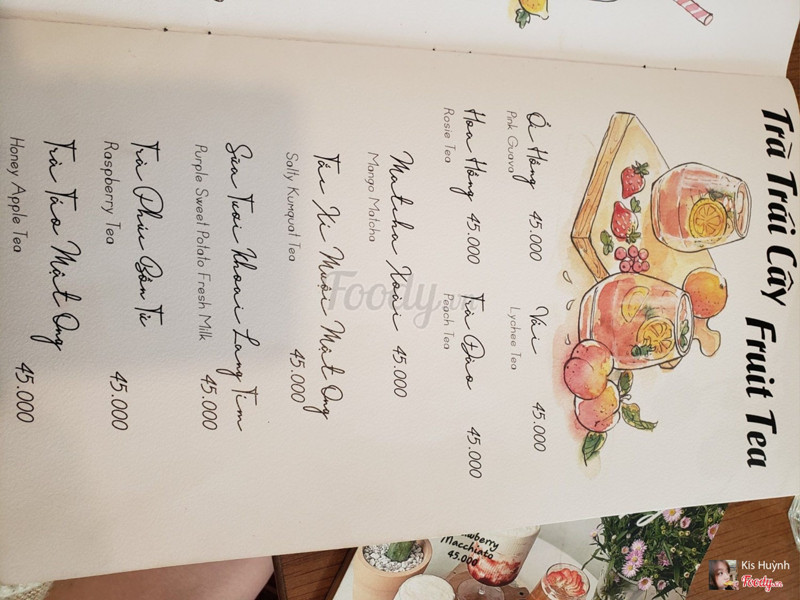 Trà Trái Cây Fruit Tea
Ổi Hồng 45.000
Pink Guava
Vải 45.000
Lychee Tea
Hoa Hồng 45.000
Rosie Tea
Trà Đào 45.000
Peach Tea
Matcha Xoài 45.000
Mango Matcha
Tắc Xí Muội Mật Ong 45.000
Salty Kumquat Tea
Sữa Tươi Khoai Lang Tím 45.000
Purple Sweet Potato Fresh Milk
Trà Phúc Bồn Tử 45.000
Raspberry Tea
Trà Táo Mật Ong 45.000
Honey Apple Tea
Macchiato
45.000
Foody.vn
Kis Huỳnh
Foody.vn